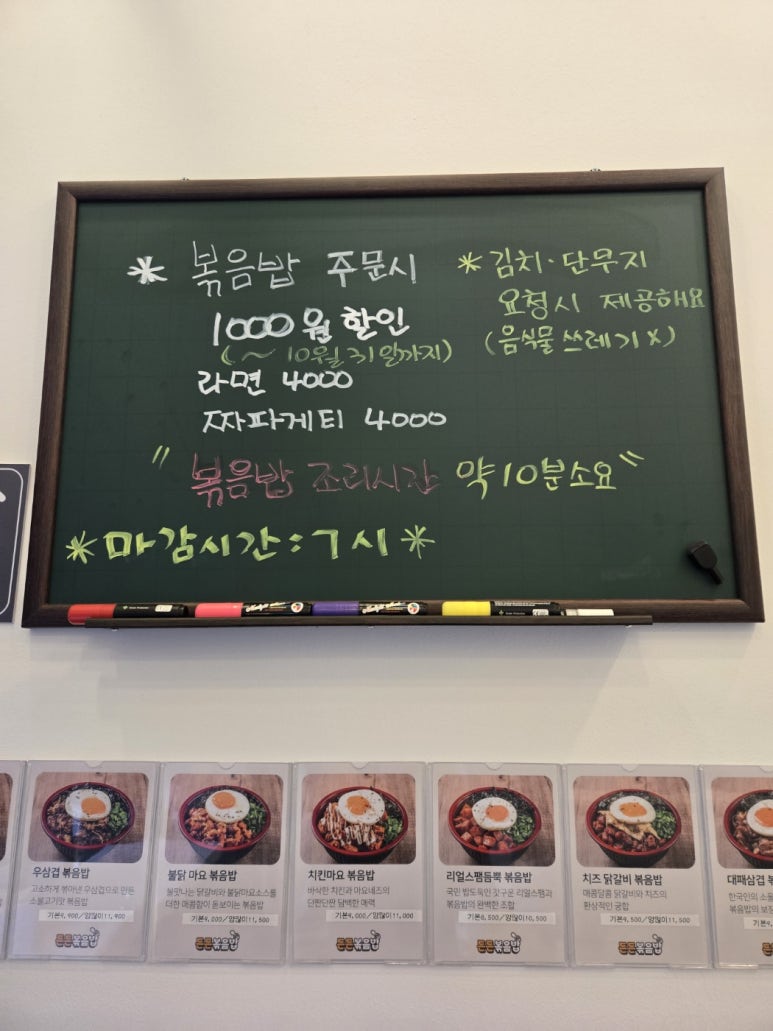 * 볶음밥 주문시
1000원 할인
(~10월 31일까지)
라면 4000
짜파게티 4000
* 김치·단무지
요청시 제공해요
(음식물 쓰레기 x)
"볶음밥 조리시간 약 10분소요"
* 마감시간 : 7시 *
우삼겹 볶음밥
고소하게 볶아낸 우삼겹으로 만든
소불고기맛 볶음밥
기본9,900/양많이11,900
든든볶음밥
불닭 마요 볶음밥
불맛나는 닭갈비와 불닭마요소스를
더한 매콤함이 돋보이는 볶음밥
/양많이11,500
든든볶음밥
치킨마요 볶음밥
바삭한 치킨과 마요네즈의
단짠단짠 담백한 매력
기본9,000/양많이11,000
든든볶음밥
리얼스팸듬뿍 볶음밥
국민 밥도둑인 갓 구운 리얼스팸과
볶음밥의 완벽한 조합
기본8,500/양많이10,500
든든볶음밥
치즈 닭갈비 볶음밥
매콤달콤 닭갈비와 치즈의
환상적인 궁합
기본9,500/양많이11,500
든든볶음밥
대패삼겹 볶
한국인의 소울
볶음밥의